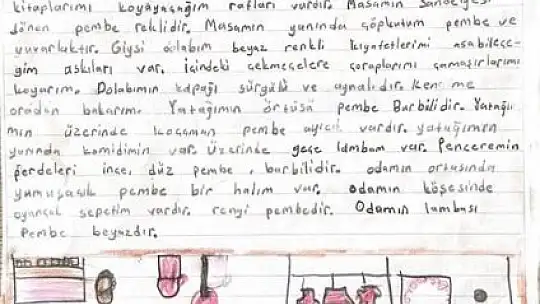 kitaplarımı koyayacağım rafları vardır. Masamın sandelyesi
dönen pembe reklidir. Masamın yanında çöpkutum pembe ve
yuvarlaktır. Giysi dolabım beyaz renkli kıyafetlerimi asabilece-
ğim askıları var. içindeki çekmecelere çoraplarımı çamaşırlarımı
koyarım. Dolabımın kapağı sürgülü ve aynalıdır. Kendime
oradan bakarım. Yatağımın örtüsü pembe Barbilidir. Yatağı
mın üzerinde kocaman pembe ayıcık vardır. yatağımın
yanında komidimin var. üzerinde gece lambam var. Penceremin
perdeleri ince, düz pembe, barbilidir. odamın ortasında
yumuşacık pembe bir halım var. odamın köşesinde
oyuncak sepetim vardır. rengi pembedir. Odamın lambası
pembe beyazdır.